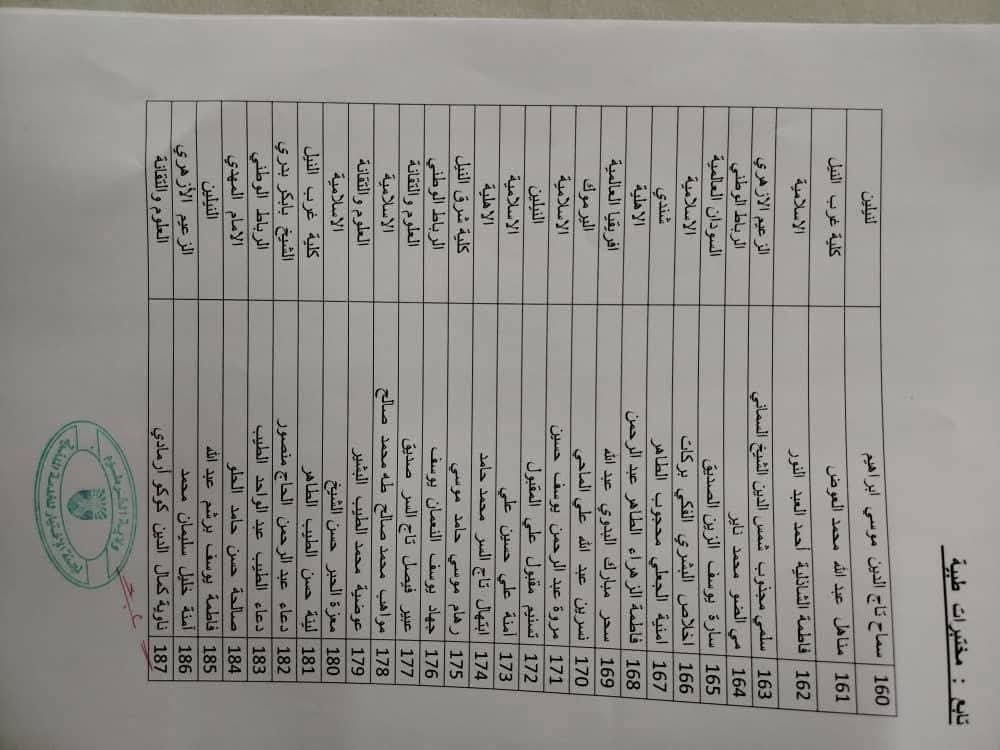 تابع : مختبرات طبية
160 سماح تاج الدين موسي ابراهيم لنيلين
161 مناهل عبد الله محمد العوض كلية غرب النيل
162 فاطمة الشاذلية أحمد العبد النور الاسلامية
163 سلمي مجذوب شمس الدين الشيخ السماني الزعيم الازهري
164 مي الضو محمد ناير الرباط الوطني
165 سارة يوسف الزين الصديق السودان العالمية
166 اخلاص البشري الفكي بركات الاسلامية
167 امنية الجعلي محجوب الطاهر شندي
168 فاطمة الزهراء الطاهر عبد الرحمن الاهلية
169 سحر مبارك البدوي عبد الله افريقيا العالمية
170 نسرين عبد الله علي الماحي اليرموك
171 مروة عبد الرحمن يوسف حسين الاسلامية
172 تسنيم مقبول علي المقبول النيلين
173 آمنة علي حسين علي الاسلامية
174 ابتهال تاج السر محمد حامد الاهلية
175 رهام موسي حامد موسي كلية شرق النيل
176 جهاد يوسف النعمان يوسف الرباط الوطني
177 عبير فيصل تاج السر صديق العلوم والتقانة
178 مواهب محمد صالح طه محمد صالح الاسلامية
179 عوضية محمد الطيب البشير العلوم والتقانة
180 معزة الحبر حسن الشيخ الاسلامية
181 لينة حسن الطيب الطاهر كلية غرب النيل
182 دعاء عبد الرحمن الحاج منصور الشيخ بابكر بدري
183 دعاء الطيب عبد الواحد الطيب الرباط الوطني
184 صالحة حسن حامد الحلو الامام المهدي
185 فاطمة يوسف برشم عبد الله النيلين
186 آمنة خليل سليمان محمد الزعيم الأزهري
187 ناوية كمال الدين كوكو أرمادي العلوم والتقانة
ولاية الخرطوم